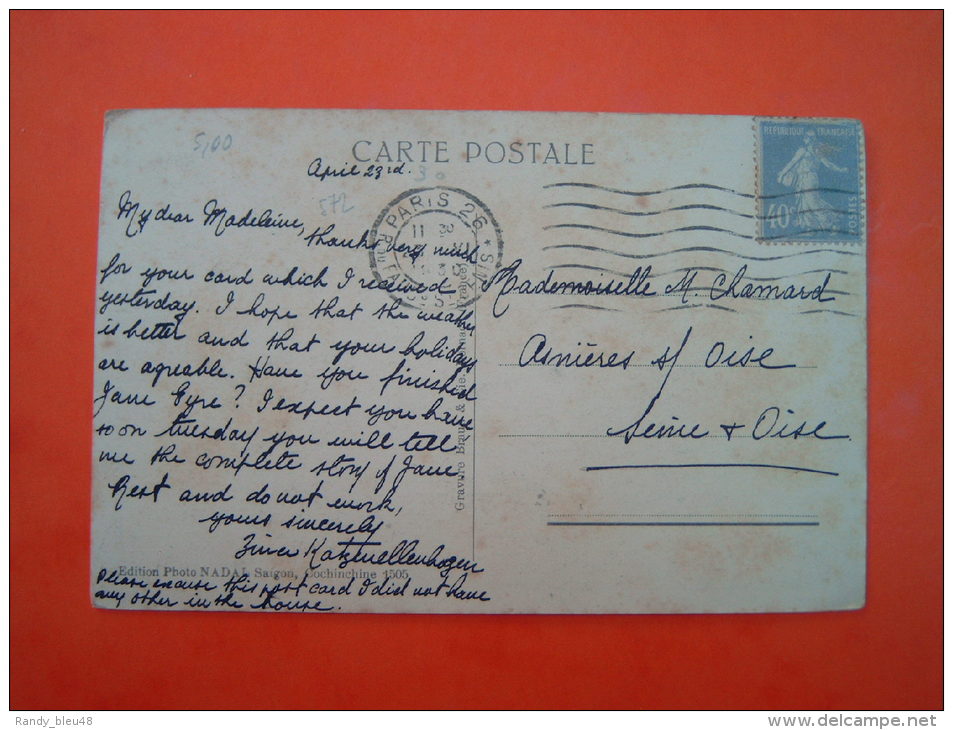 5,00
CARTE POSTALE
April 23rd.
30
572
My dear Madeleine,
thanks very much
for your card which I received
yesterday. I hope that the weather
is better and that your holidays
are agreable. Have you finished
Jane Eyre? I expect you have
so on tuesday you will tell
me the complete story of Jane
Rest and do not work,
yours sincerely
Katzenellenbogen
Edition Photo NADAL Saïgon, Cochinchine 1505
Please excuse this post card I did not have
any other in the house.
PARIS 26
REPUBLIQUE FRANÇAISE
40c
POSTES
Mademoiselle M. Chamard
Asnières s/ Oise
Seine & Oise
Gravure Braun & Cie.
Randy_bleu48
www.delcampe.net